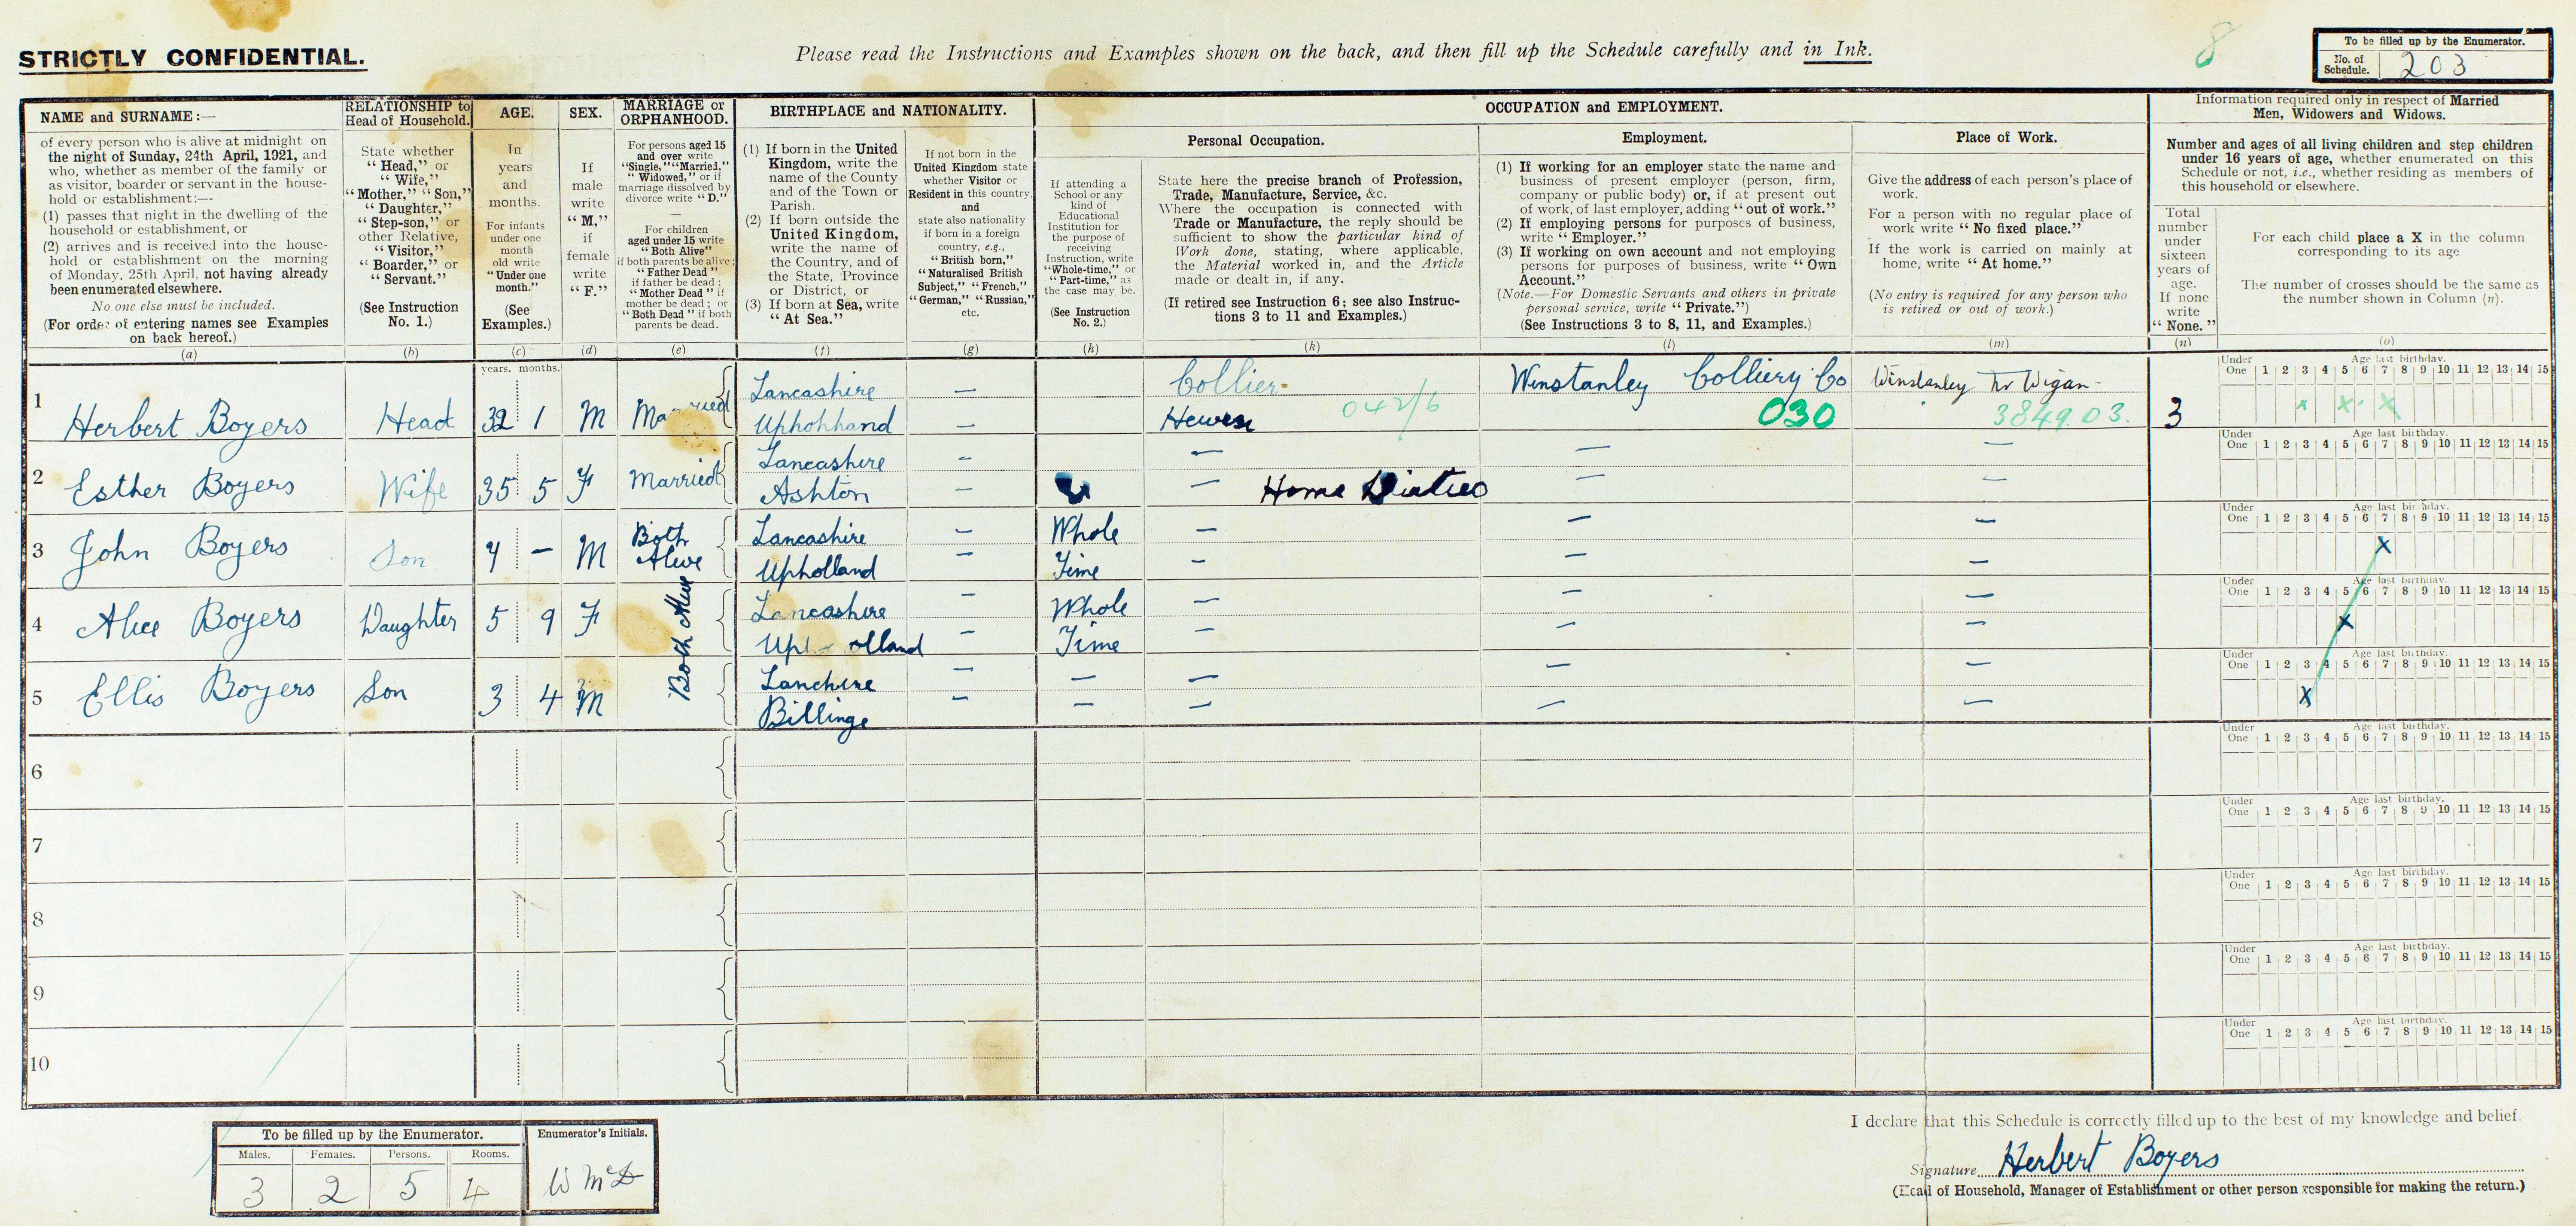 STRICTLY CONFIDENTIAL.
Please read the Instructions and Examples shown on the back, and then fill up the Schedule carefully and in Ink.
8
To be filled up by the Enumerator.
No. of Schedule. 203
NAME and SURNAME:—
of every person who is alive at midnight on
the night of Sunday, 24th April, 1921, and
who, whether as member of the family or
as visitor, boarder or servant in the house-
hold or establishment:—
(1) passes that night in the dwelling of the
household or establishment, or
(2) arrives and is received into the house-
hold or establishment on the morning
of Monday, 25th April, not having already
been enumerated elsewhere.
No one else must be included.
(For order of entering names see Examples
on back hereof.)
(a)
RELATIONSHIP to
Head of Household.
State whether
“Head,” or
“Wife,”
“Mother,” “Son,”
“Daughter,”
“Step-son,” or
other Relative,
“Visitor,”
“Boarder,” or
“Servant.”
(See Instruction
No. 1.)
(b)
AGE.
In
years
and
months.
For infants
under one
month
old write
“Under one
month.”
(See
Examples.)
(c)
SEX.
If
male
write
“M,”
if
female
write
“F.”
(d)
MARRIAGE or
ORPHANHOOD.
For persons aged 15
and over write
“Single,” “Married,”
“Widowed,” or if
marriage dissolved by
divorce write “D.”
—
For children
aged under 15 write
“Both Alive”
if both parents be alive;
“Father Dead”
if father be dead;
“Mother Dead” if
mother be dead; or
“Both Dead” if both
parents be dead.
(e)
BIRTHPLACE and NATIONALITY.
(1) If born in the United
Kingdom, write the
name of the County
and of the Town or
Parish.
(2) If born outside the
United Kingdom,
write the name of
the Country, and of
the State, Province
or District, or
(3) If born at Sea, write
“At Sea.”
(f)
If not born in the
United Kingdom state
whether Visitor or
Resident in this country,
and
state also nationality
if born in a foreign
country, e.g.,
“British born,”
“Naturalised British
Subject,” “French,”
“German,” “Russian,”
etc.
(g)
OCCUPATION and EMPLOYMENT.
If attending a
School or any
kind of
Educational
Institution for
the purpose of
receiving
Instruction, write
“Whole-time,” or
“Part-time,” as
the case may be.
(See Instruction
No. 2.)
(h)
Personal Occupation.
State here the precise branch of Profession,
Trade, Manufacture, Service, &c.
Where the occupation is connected with
Trade or Manufacture, the reply should be
sufficient to show the particular kind of
Work done, stating, where applicable,
the Material worked in, and the Article
made or dealt in, if any.
(If retired see Instruction 6; see also Instruc-
tions 3 to 11 and Examples.)
(k)
Employment.
(1) If working for an employer state the name and
business of present employer (person, firm,
company or public body) or, if at present out
of work, of last employer, adding “out of work.”
(2) If employing persons for purposes of business,
write “Employer.”
(3) If working on own account and not employing
persons for purposes of business, write “Own
Account.”
(Note.—For Domestic Servants and others in private
personal service, write “Private.”)
(See Instructions 3 to 8, 11, and Examples.)
(l)
Place of Work.
Give the address of each person's place of
work.
For a person with no regular place of
work write “No fixed place.”
If the work is carried on mainly at
home, write “At home.”
(No entry is required for any person who
is retired or out of work.)
(m)
Information required only in respect of Married
Men, Widowers and Widows.
Number and ages of all living children and step children
under 16 years of age, whether enumerated on this
Schedule or not, i.e., whether residing as members of
this household or elsewhere.
Total
number
under
sixteen
years of
age.
If none
write
“None.”
(n)
For each child place a X in the column
corresponding to its age
The number of crosses should be the same as
the number shown in Column (n).
(o)
years. months.
Under One Age last birthday. 1 2 3 4 5 6 7 8 9 10 11 12 13 14 15
1 Herbert Boyers Head 32 1 M Married Lancashire — Collier Winstanley Colliery Co Winstanley Nr Wigan 3 x x x
Uphohhand — Hewer 042/6 030 3849.03.
Under One Age last birthday. 1 2 3 4 5 6 7 8 9 10 11 12 13 14 15
2 Esther Boyers Wife 35 5 F Married Lancashire — — — —
Ashton — — Home — —
Under One Age last birthday. 1 2 3 4 5 6 7 8 9 10 11 12 13 14 15
3 John Boyers Son 7 — M Both Alive Lancashire — Whole — — — X
Upholland — Time — — —
Under One Age last birthday. 1 2 3 4 5 6 7 8 9 10 11 12 13 14 15
4 Alice Boyers Daughter 5 9 F Both Alive Lancashire — Whole — — — X
Upholland — Time — — —
Under One Age last birthday. 1 2 3 4 5 6 7 8 9 10 11 12 13 14 15
5 Ellis Boyers Son 3 4 M Lanchire — — — — — X
Billinge — — — — —
Under One Age last birthday. 1 2 3 4 5 6 7 8 9 10 11 12 13 14 15
6
Under One Age last birthday. 1 2 3 4 5 6 7 8 9 10 11 12 13 14 15
7
Under One Age last birthday. 1 2 3 4 5 6 7 8 9 10 11 12 13 14 15
8
Under One Age last birthday. 1 2 3 4 5 6 7 8 9 10 11 12 13 14 15
9
Under One Age last birthday. 1 2 3 4 5 6 7 8 9 10 11 12 13 14 15
10
To be filled up by the Enumerator.
Males. Females. Persons. Rooms.
3 2 5 4
Enumerator's Initials.
W McD
I declare that this Schedule is correctly filled up to the best of my knowledge and belief.
Signature Herbert Boyers
(Head of Household, Manager of Establishment or other person responsible for making the return.)